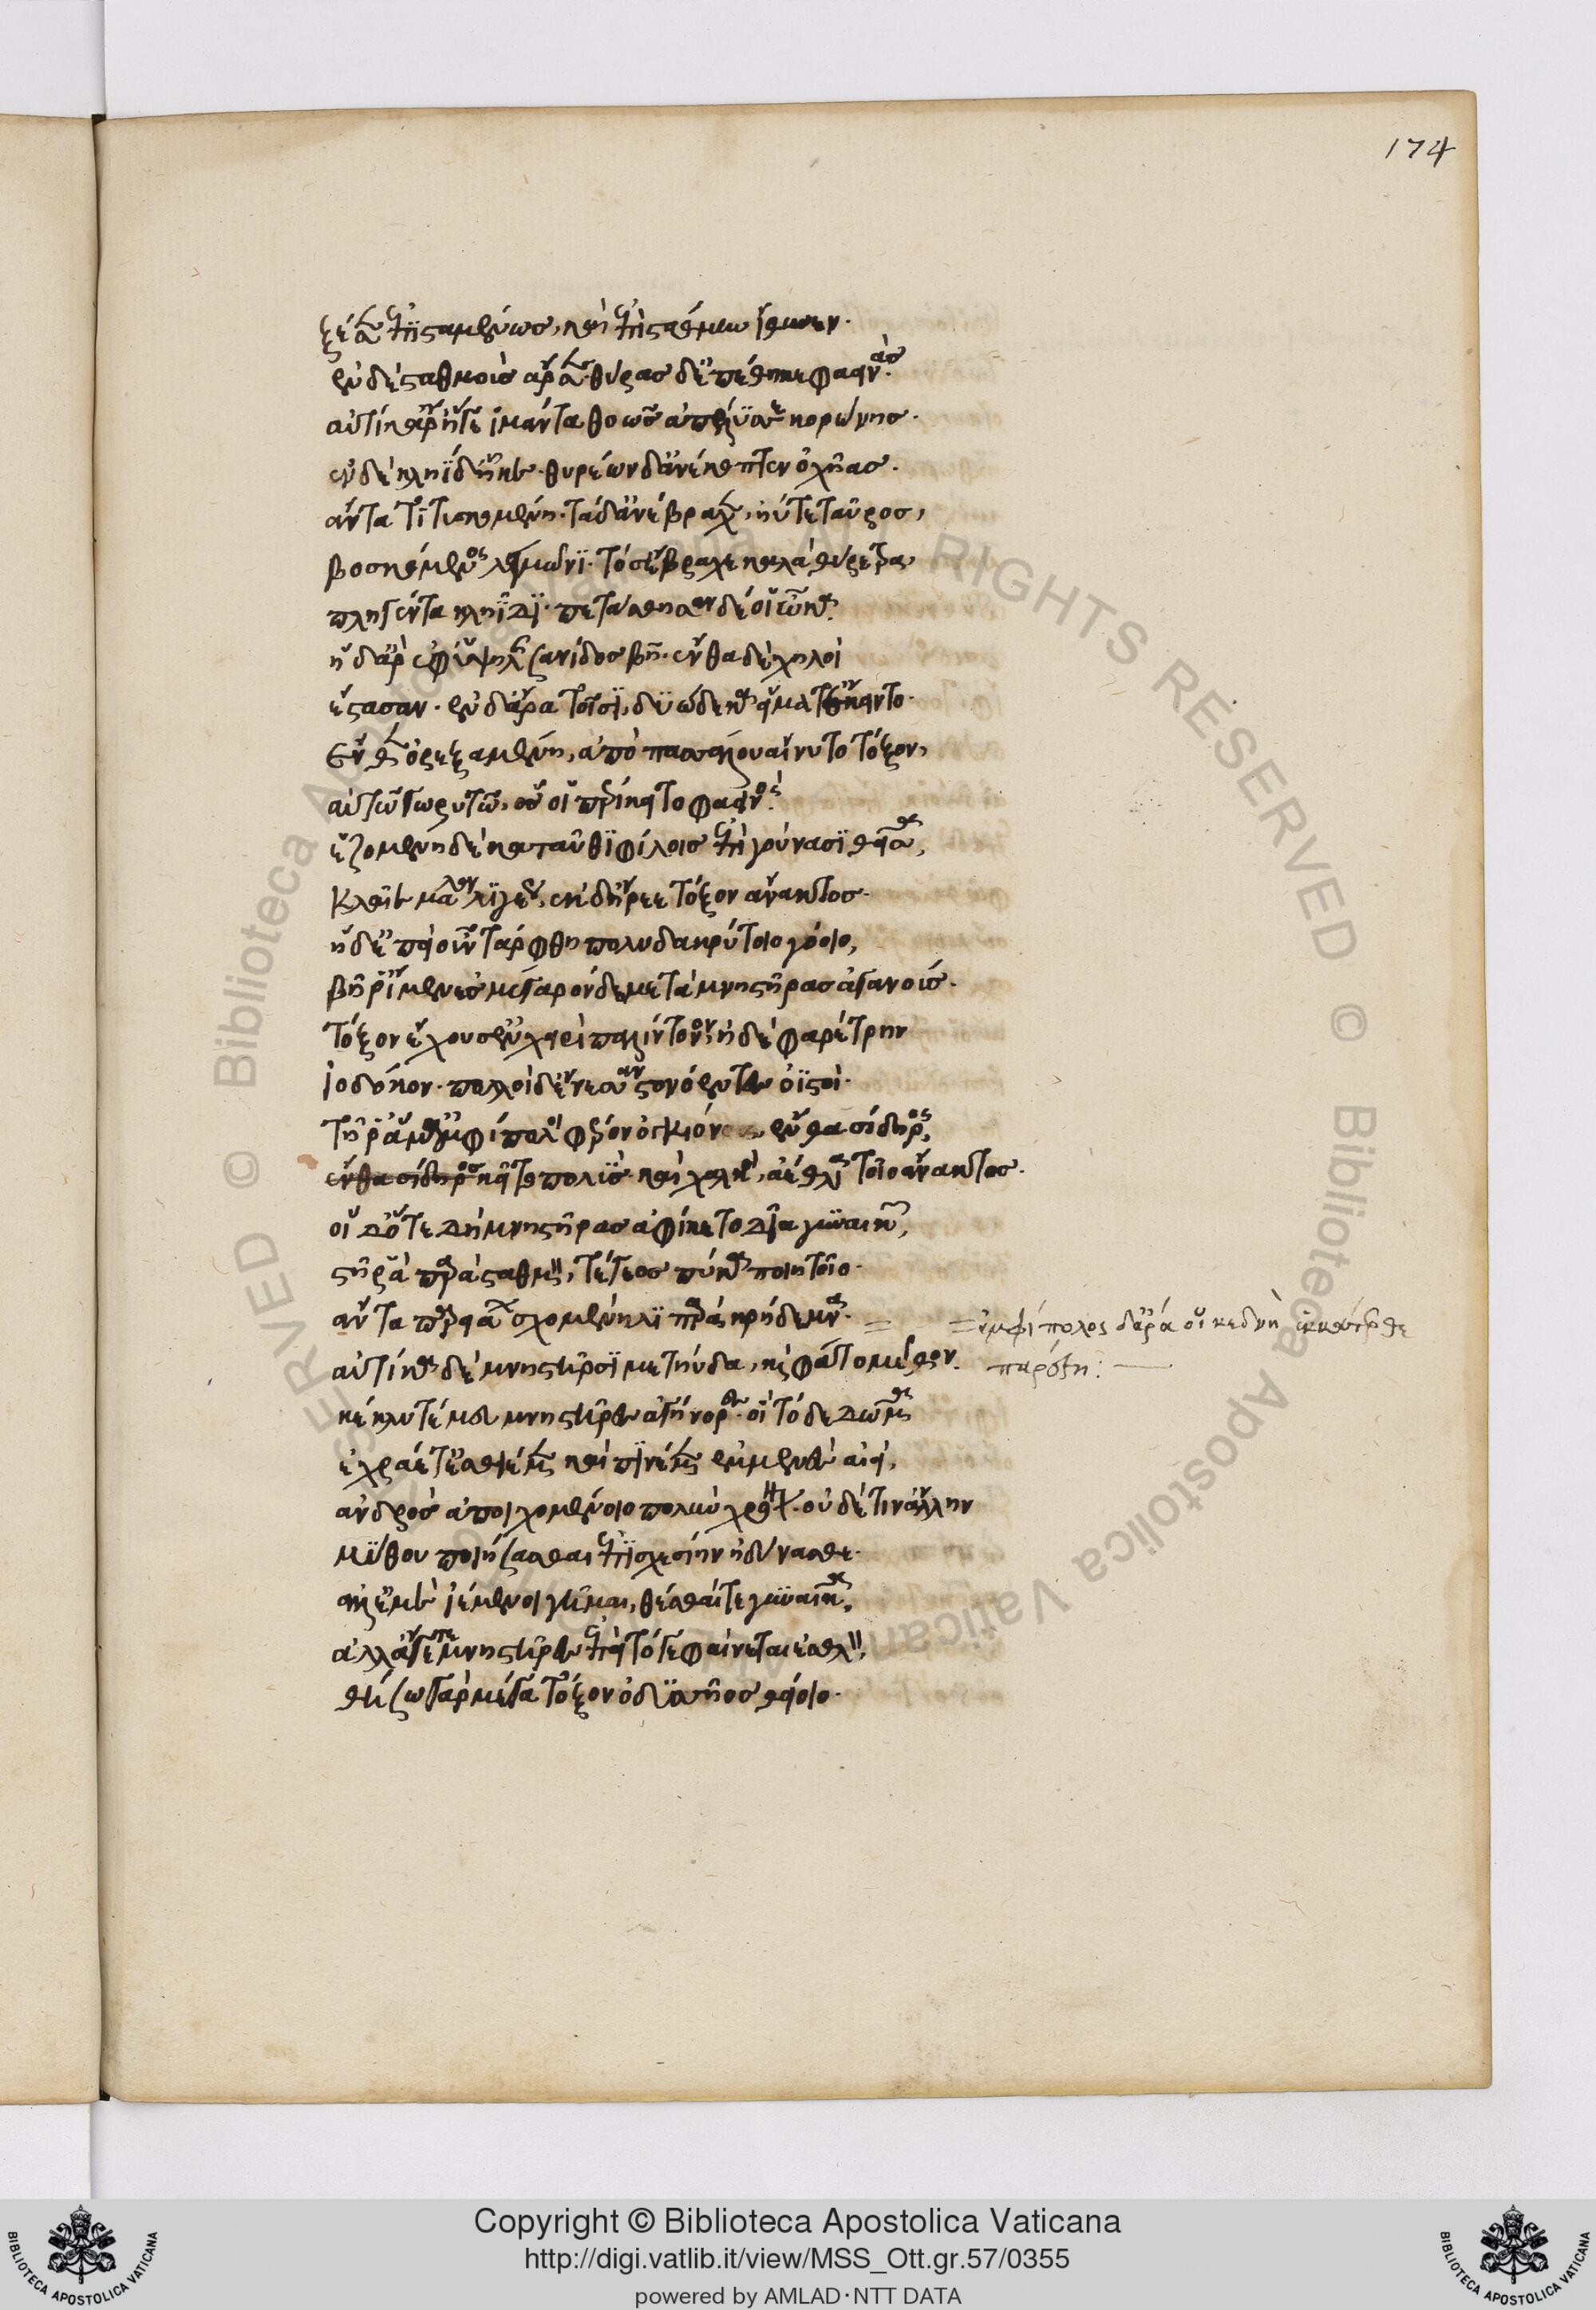 174
ξέσσεν ἐπισταμένως, καὶ ἐπὶ στάθμην ἴθυνεν.
ἐν δὲ σταθμοὺς ἄρσεν. θύρας δ' ἐπέθηκε φαεινάς.
αὐτίκ' ἄρ' ἥ γε ἱμάντα θοῶς ἀπέλυσε κορώνης.
ἐν δὲ κληῖδ' ἧκε. θυρέων δ' ἀνέκοπτεν ὀχῆας.
ἄντα τιτυσκομένη. τὰ δ' ἀνέβραχεν, ἠΰτε ταῦρος,
βοσκόμενος λειμῶνι. τόσ' ἔβραχε καλὰ θύρετρα,
πληγέντα κληῖδι. πετάσθησαν δέ οἱ ὦκα.
ἡ δ' ἄρ' ἐφ' ὑψηλῆς σανίδος βῆ. ἔνθα δὲ χηλοὶ
ἕστασαν. ἐν δ' ἄρα τοῖσι, θυώδεα εἵματ' ἔκειντο.
ἔνθεν ὀρεξαμένη, ἀπὸ πασσάλου αἴνυτο τόξον,
αὐτῷ γωρυτῷ, ὅς οἱ περίκειτο φαεινός.
ἑζομένη δὲ κατ' αὖθι φίλοις ἐπὶ γούνασι θεῖσα,
κλαῖε μάλα λιγέως, ἐκ δ' ᾕρεε τόξον ἄνακτος.
ἡ δ' ἐπεὶ οὖν τάρφθη πολυδακρύτοιο γόοιο,
βῆ ῥ' ἴμεναι ἐς μέγαρόνδε μετὰ μνηστῆρας ἀγαυούς.
τόξον ἔχουσ' ἐν χειρὶ παλίντονον, ἠδὲ φαρέτρην
ἰοδόκον. πολλοὶ δ' ἔνεσαν στονόεντες ὀϊστοί.
τῇ δ' ἄρ' ἅμ' ἀμφίπολοι φέρον ὄγκιον, ἔνθα σίδηρος,
ἔνθα σίδηρος κεῖτο πολὺς. καὶ χαλκὸς, ἀέθλια τοῖο ἄνακτος.
ἡ δ' ὅτε δὴ μνηστῆρας ἀφίκετο δῖα γυναικῶν,
στῆ ῥα παρὰ σταθμὸν, τέγεος πύκα ποιητοῖο.
ἄντα παρειάων σχομένη λιπαρὰ κρήδεμνα. =
= ἀμφίπολος δ' ἄρά οἱ κεδνὴ ἑκάτερθε
παρέστη:
αὐτίκα δὲ μνηστῆρσι μετηύδα, καὶ φάτο μῦθον.
κέκλυτέ μευ μνηστῆρες ἀγήνορες. οἳ τόδε δῶμα
ἐχράετ' ἐσθιέμεν καὶ πινέμεν ἐμμενὲς αἰεὶ,
ἀνδρὸς ἀποιχομένοιο πολὺν χρόνον. οὐδέ τιν' ἄλλην
μύθου ποιήσασθαι ἐπισχεσίην ἠδύνασθε.
ἀλλ' ἐμὲ ἱέμενοι γῆμαι, θέσθαί τε γυναῖκα.
ἀλλ' ἄγετε μνηστῆρες ἐπεὶ τόδε φαίνετ' ἄεθλον,
θήσω γὰρ μέγα τόξον ὀδυσσῆος θείοιο.
Copyright © Biblioteca Apostolica Vaticana
http://digi.vatlib.it/view/MSS_Ott.gr.57/0355
powered by AMLAD·NTT DATA